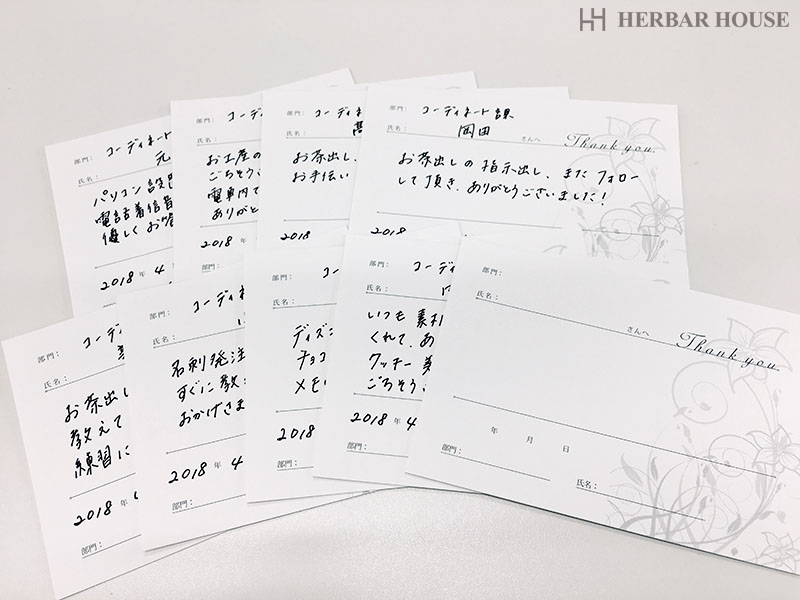 HERBAR HOUSE
部門： コーディネート
元
パソコン設
電話着信音
優しくお
2018年4
コーディネート
お土産の
ごちそう、
電車内で
ありがと
2018
部門： コーディネ
氏名：
お茶出し、
お手伝い
2018
部門： コーディネート課
氏名： 岡田 さんへ
Thank you.
お茶出しの指示出し、またフォロー
して頂き、ありがとうございました！
2018
部門： コーデ
氏名：
お茶出し
教えて
練習に
2018年
部門：
部門： コーディネ
氏名：
名刺発注
すぐに教
おかげさま
2018年4
部門：
部門： コーディ
氏名：
ディズニ
チョコ
メモ
2018
部門：
部門： コーディ
氏名：
いつも素材
くれて、あ
クッキー美
ごちそう、
2018年4
部門：
部門：
氏名：
さんへ
Thank you.
年 月 日
部門：
氏名：